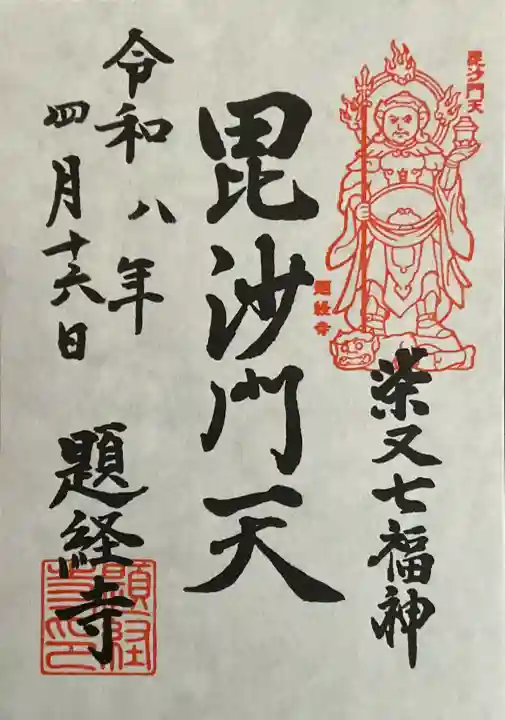 毘沙門天
題経寺
柴又七福神
毘沙門天
令和八年
四月十六日
題経寺